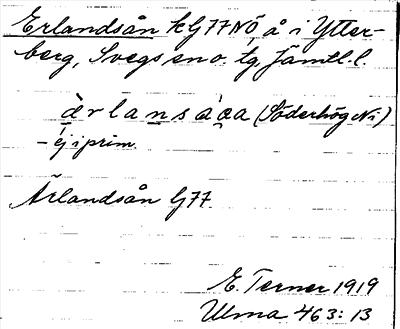 Erlandsån kG77NÖ, å i Ytter-
berg, Svegs sn o. tg, Jämtl. l.
ärlansåa (Söderhög Ni)
– ej i prim.
Ärlandsån G77.
E. Terner 1919
Ulma 463:13